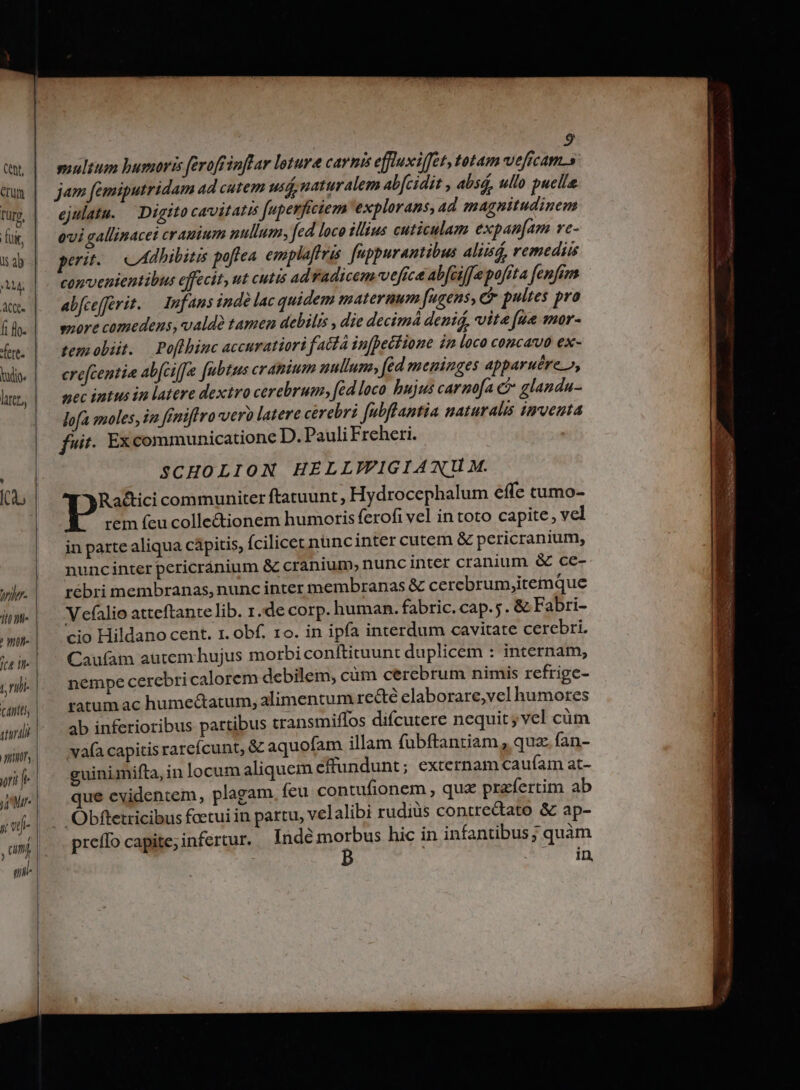 9
multum humoris ſeroſi inſtar loturæ carnis effluxiſſet, totam veſicam
jam ſemiputridam ad cutem uſq́, naturalem abſcidit, absq́, ullo puellæ
ejulatu. Digito cavitatis ſuperficiem explorans, ad magnitudinem
ovi gallinacei cranium nullum, ſed loco illius cuticulam expanſam re-
perit. Adhibitis poſtea emplaſtris ſuppurantibus aliisq́, remediis
convenientibus effecit, ut cutis ad radicem veſicæ abſciſſæ poſita ſenſim
abſceſſerit. Infans indè lac quidem maternum ſugens, & pultes pro
more comedens, valdè tamen debilis, die decimâ deniq́, vitæ ſuæ mor-
tem obiit. Poſthinc accuratiori factâ inſpectione in loco concavo ex-
creſcentiæ abſciſſæ ſubtus cranium nullum, ſed meninges apparuêre,
nec intus in latere dextro cerebrum, ſed loco hujus carnoſa & glandu-
loſa moles, in ſiniſtro verò latere cerebri ſubſtantia naturalis inventa
fuit. Ex communicatione D. Pauli Freheri.
SCHOLION HELLWIGIANUM.
PRactici communiter ſtatuunt, Hydrocephalum eſſe tumo-
rem ſeu collectionem humoris ſeroſi vel in toto capite, vel
in parte aliqua capitis, ſcilicet nunc inter cutem & pericranium,
nunc inter pericranium & cranium, nunc inter cranium & ce-
rebri membranas, nunc inter membranas & cerebrum, itemque
Veſalio atteſtante lib. 1. de corp. human. fabric. cap. 5. & Fabri-
cio Hildano cent. 1. obſ. 10. in ipſa interdum cavitate cerebri.
Cauſam autem hujus morbi conſtituunt duplicem : internam,
nempe cerebri calorem debilem, cùm cerebrum nimis refrige-
ratum ac humectatum, alimentum rectè elaborare, vel humores
ab inferioribus partibus transmiſſos diſcutere nequit; vel cùm
vaſa capitis rareſcunt, & aquoſam illam ſubſtantiam, quæ ſan-
guini miſta, in locum aliquem effundunt; externam cauſam at-
que evidentem, plagam ſeu contuſionem, quæ præſertim ab
Obſtetricibus fœtui in partu, vel alibi rudiùs contrectato & ap-
preſſo capite, infertur. Indè morbus hic in infantibus, quàm
B in